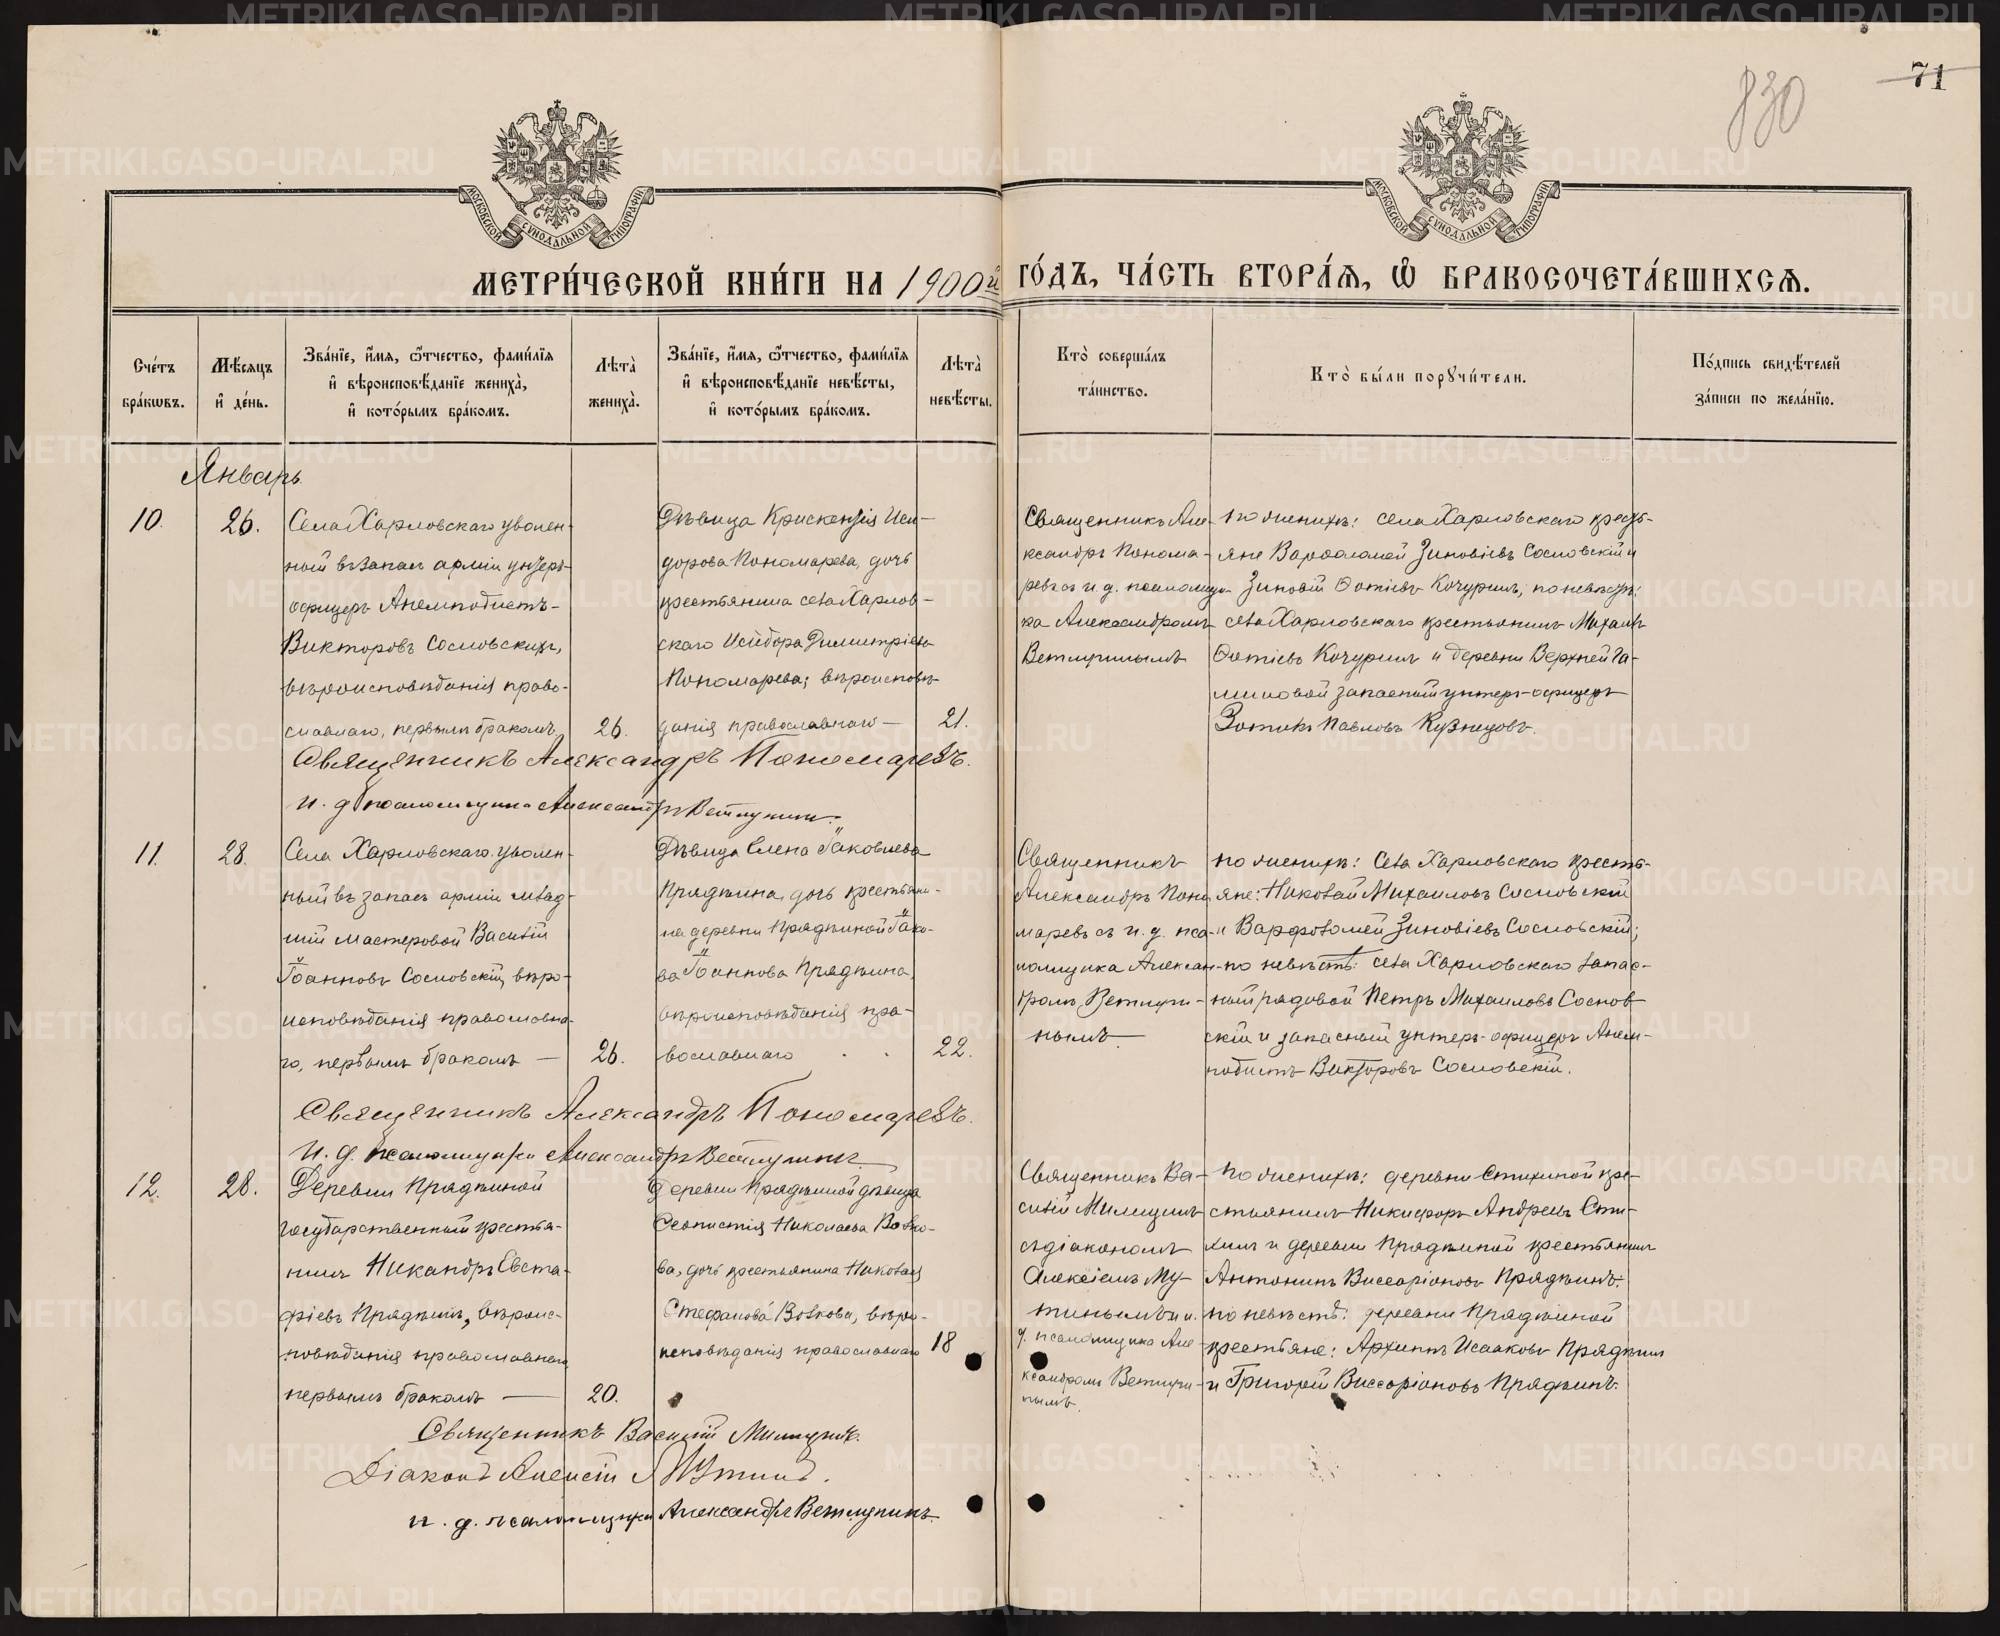 71
830
МОСКОВСКОЙ СѴНОДАЛЬНОЙ ТИПОГРАФІИ
МОСКОВСКОЙ СѴНОДАЛЬНОЙ ТИПОГРАФІИ
МЕТРИ́ЧЕСКОЙ КНИ́ГИ НА 1900й ГО́ДЪ, ЧА́СТЬ ВТОРА́Ѧ, Ѡ҆ БРАКОСОЧЕТА́ВШИХСѦ.
Сче́тъ бра́кѡвъ.
Мѣ́сѧцъ и҆ де́нь.
Зва́нїе, и҆́мѧ, ѻ҆́тчество, фами́лїѧ
и҆ вѣроисповѣ́данїе жениха̀,
и҆ кото́рымъ бра́комъ.
Лѣта̀ жениха̀.
Зва́нїе, и҆́мѧ, ѻ҆́тчество, фами́лїѧ
и҆ вѣроисповѣ́данїе невѣ́сты,
и҆ кото́рымъ бра́комъ.
Лѣта̀ невѣ́сты.
Кто̀ соверша́лъ
та́инство.
Кто̀ бы́ли порꙋчи́тели.
По́дпись свидѣ́телей
за́писи по жела́нїю.
Январь
10.
26.
Села Харловскаго уволен-
ный въ запас арміи унтеръ-
офицеръ Анемподистъ
Викторовъ Сосновскихъ,
вѣроисповѣданія право-
славнаго, первымъ бракомъ
26.
Дѣвица Крискентія Иси-
дорова Пономарева, дочь
крестьянина села Харлов-
скаго Исидора Димитріева
Пономарева; вѣроисповѣ-
данія православнаго —
21.
Священникъ Але-
ксандръ Понома-
ревъ съ и. д. псаломщи-
ка Александромъ
Ветлугинымъ
По женихѣ: села Харловскаго кресть-
яне Варфоломей Зиновіевъ Сосновскій и
Зиновій Фотіевъ Кочуринъ, по невѣстѣ:
села Харловскаго крестьянинъ Михаилъ
Фотіевъ Кочуринъ и деревни Верхней Га-
запасный унтеръ-офицеръ
Зотикъ Павловъ Кузнецовъ.
Священникъ Александръ Пономаревъ.
и. д. псаломщика Александръ Ветлугинъ.
11.
28.
Села Харловскаго уволен-
ный въ запас арміи млад-
шій мастеровой Василій
Іоанновъ Сосновскій, вѣро-
исповѣданія православна-
го, первымъ бракомъ —
26.
Дѣвица Елена Іаковлева
Прядѣина, дочь крестьяни-
на деревни Прядѣиной Іако-
ва Іоаннова Прядѣина,
вѣроисповѣданія пра-
вославнаго
22.
Священникъ
Александръ Поно-
маревъ съ и. д. пса-
ломщика Алексан-
дромъ Ветлуги-
нымъ
По женихѣ: села Харловскаго кресть-
яне: Николай Михаиловъ Сосновскій
и Варфоломей Зиновіевъ Сосновскій;
по невѣстѣ: села Харловскаго запас-
ный рядовой Петръ Михаиловъ Соснов-
скій и запасный унтеръ-офицеръ Анем-
подистъ Викторовъ Сосновскій.
Священникъ Александръ Пономаревъ.
И. д. псаломщика Александръ Ветлугинъ.
12.
28.
Деревни Прядѣиной
государственный крестья-
нинъ Никандръ Евста-
фіевъ Прядѣинъ, вѣроис-
повѣданія православнаго
первымъ бракомъ —
20.
Деревни Прядѣиной дѣвица
Ѳеопистія Николаева Волко-
ва, дочь крестьянина Николая
Стефанова Волкова, вѣро-
исповѣданія православнаго
18
Священникъ Ва-
силій Милицинъ
съ діакономъ
Алексіемъ Му-
тинымъ и и.
д. псаломщика Але-
ксандромъ Ветлуги-
нымъ.
По женихѣ: деревни Стихиной кре-
стьянинъ Никифоръ Андреевъ Сти-
хинъ и деревни Прядѣиной крестьянинъ
Антонинъ Виссаріоновъ Прядѣинъ.
по невѣстѣ: деревни Прядѣиной
крестьяне: Архипъ Исааковъ Прядѣинъ
и Григорій Виссаріоновъ Прядѣинъ.
Священникъ Василій Милицинъ.
Діаконъ Алексій Мутинъ.
и. д. псаломщика Александръ Ветлугинъ.
METRIKI.GASO-URAL.RU